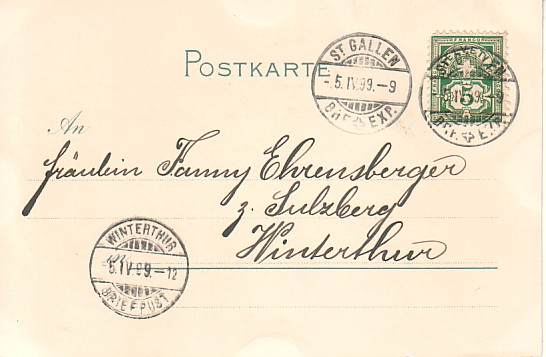 POSTKARTE
ST. GALLEN
-.5.IV.99.-9
BRF. EXP.
FRANCO
ST. GALLEN
5
BRF. EXP.
An
Fräulein Fanny Ehrensberger
z. Sulzberg
Winterthur
WINTERTHUR
5.IV.99.-12
BRIEFPOST